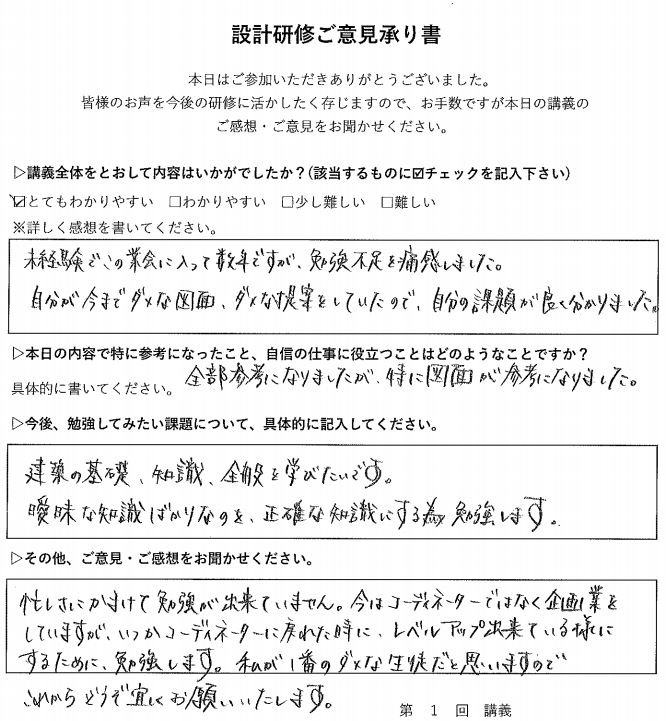 設計研修ご意見承り書
本日はご参加いただきありがとうございました。
皆様のお声を今後の研修に活かしたく存じますので、お手数ですが本日の講義の
ご感想・ご意見をお聞かせください。
▷講義全体をとおして内容はいかがでしたか？(該当するものに☑チェックを記入下さい)
☑とてもわかりやすい　□わかりやすい　□少し難しい　□難しい
※詳しく感想を書いてください。
未経験でこの業会に入って数年ですが、勉強不足を痛感しました。
自分が今までダメな図面、ダメな提案をしていたので、自分の課題が良く分かりました。
▷本日の内容で特に参考になったこと、自信の仕事に役立つことはどのようなことですか？
具体的に書いてください。 全部参考になりましたが、特に図面が参考になりました。
▷今後、勉強してみたい課題について、具体的に記入してください。
建築の基礎、知識、全般を学びたいです。
曖昧な知識ばかりなのを、正確な知識にする為勉強します。
▷その他、ご意見・ご感想をお聞かせください。
忙しさにかまけて勉強が出来ていません。今はコーディネーターではなく企画業を
していますが、いつかコーディネーターに戻れた時に、レベルアップ出来ている様に
するために、勉強します。私が1番のダメな生徒だと思いますので
これからどうぞ宜しくお願いいたします。
第　1　回　講義